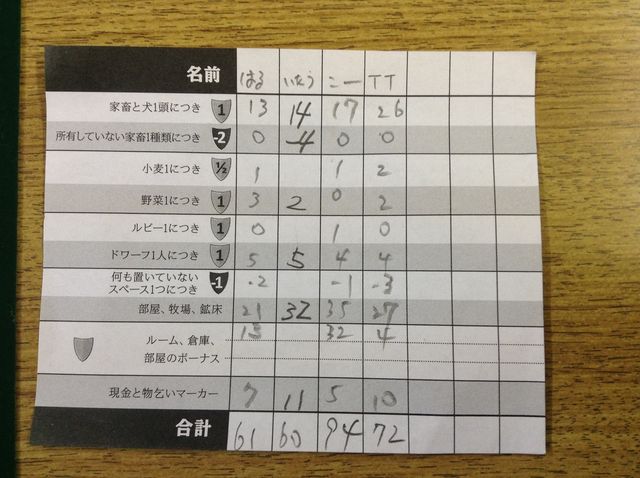 名前 はる いたう こー TT
家畜と犬1頭につき 1 13 14 17 26
所有していない家畜1種類につき -2 0 -4 0 0
小麦1につき ½ 1 1 2
野菜1につき 1 3 2 0 2
ルビー1につき 1 0 1 0
ドワーフ1人につき 1 5 5 4 4
何も置いていない
スペース1つにつき -1 -2 -1 -3
部屋、牧場、鉱床 21 32 35 27
ルーム、倉庫、 13 32 4
部屋のボーナス
現金と物乞いマーカー 7 11 5 10
合計 61 60 94 72